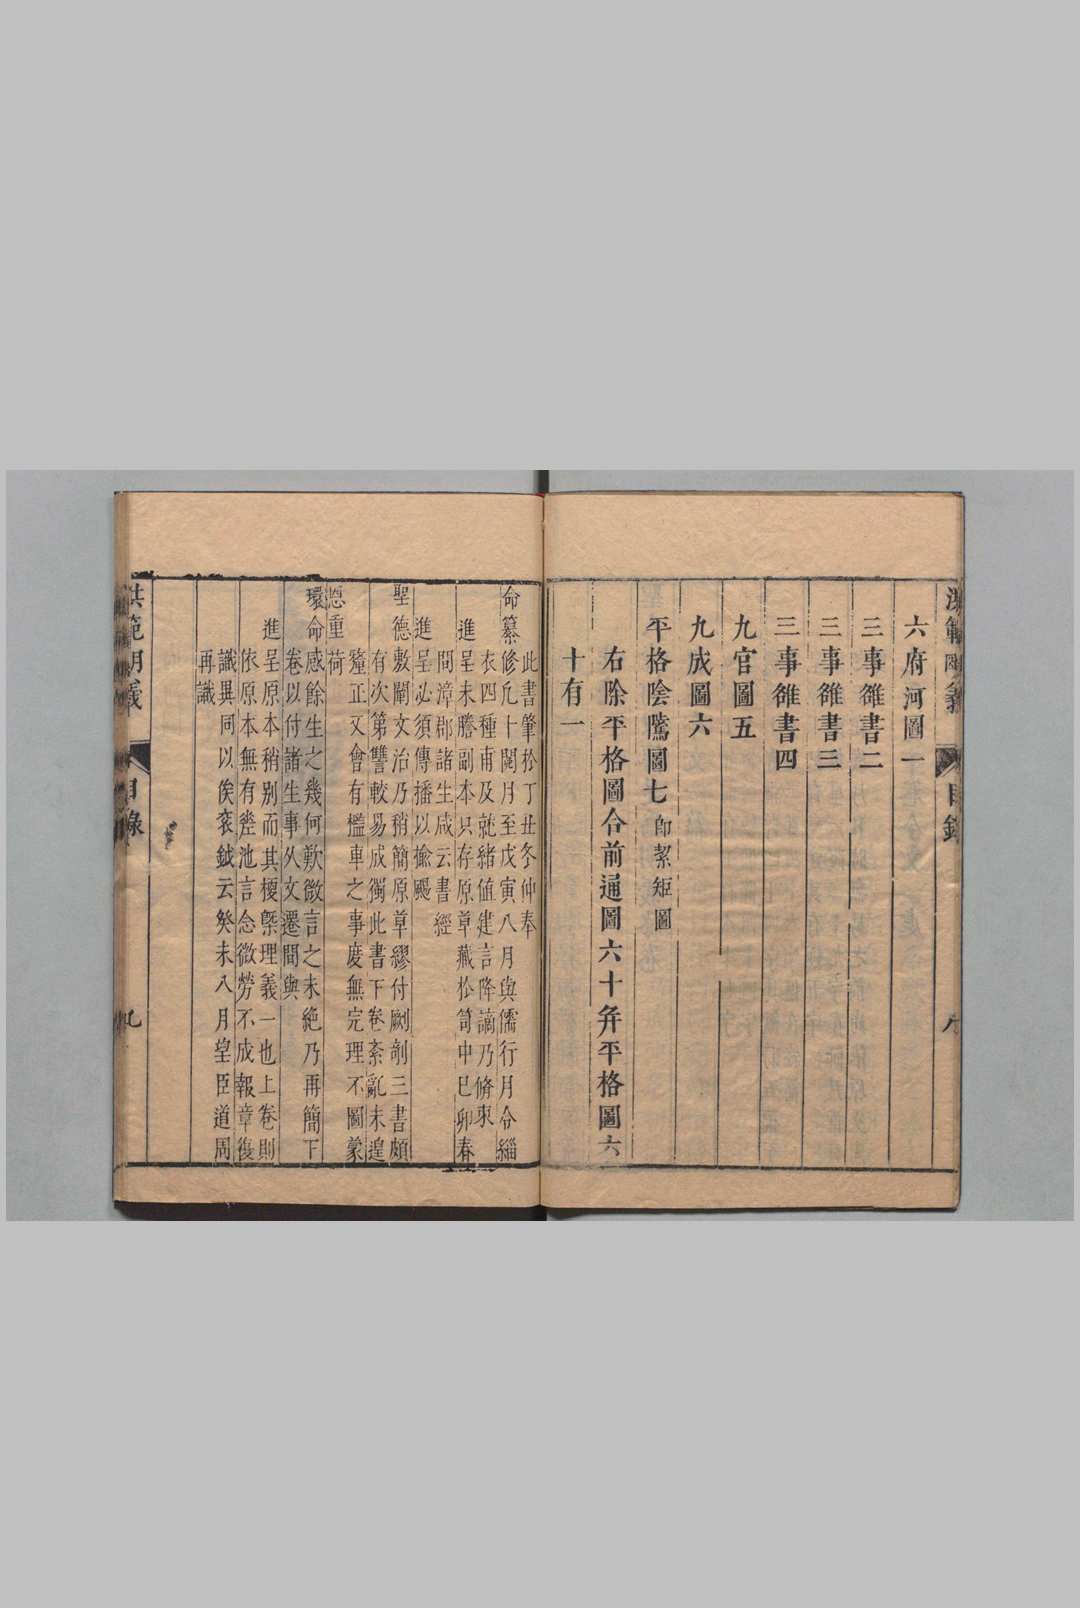 六府河圖一
三事雒書二
三事雒書三
三事雒書四
九官圖五
九成圖六
平格陰隲圖七即絜矩圖
右除平格圖合前通圖六十弁平格圖六
十有一
此書肇於丁丑冬仲奉
命纂修凡十閱月至戊寅八月與儒行月令緇
衣四種甫及就緒值建言降謫乃脩束
進呈未謄副本只存原草藏於笥中己卯春
間漳郡諸生咸云書經
進呈必須傳播以揄颺
聖德敷闡文治乃稍簡原草繆付劂剞三書頗
有次第讐較易成獨此書下卷紊亂未遑
釐正又會有檻車之事度無完理不圖蒙
恩重荷
環命感餘生之幾何歎微言之未絶乃再簡下
卷以付諸生事從文遷間與
進呈原本稍别而其梗槩理義一也上卷則
依原本無有差池言念微勞不成報章復
識異同以俟衮鉞云癸未八月望臣道周
再識
洪範明義
目錄
九